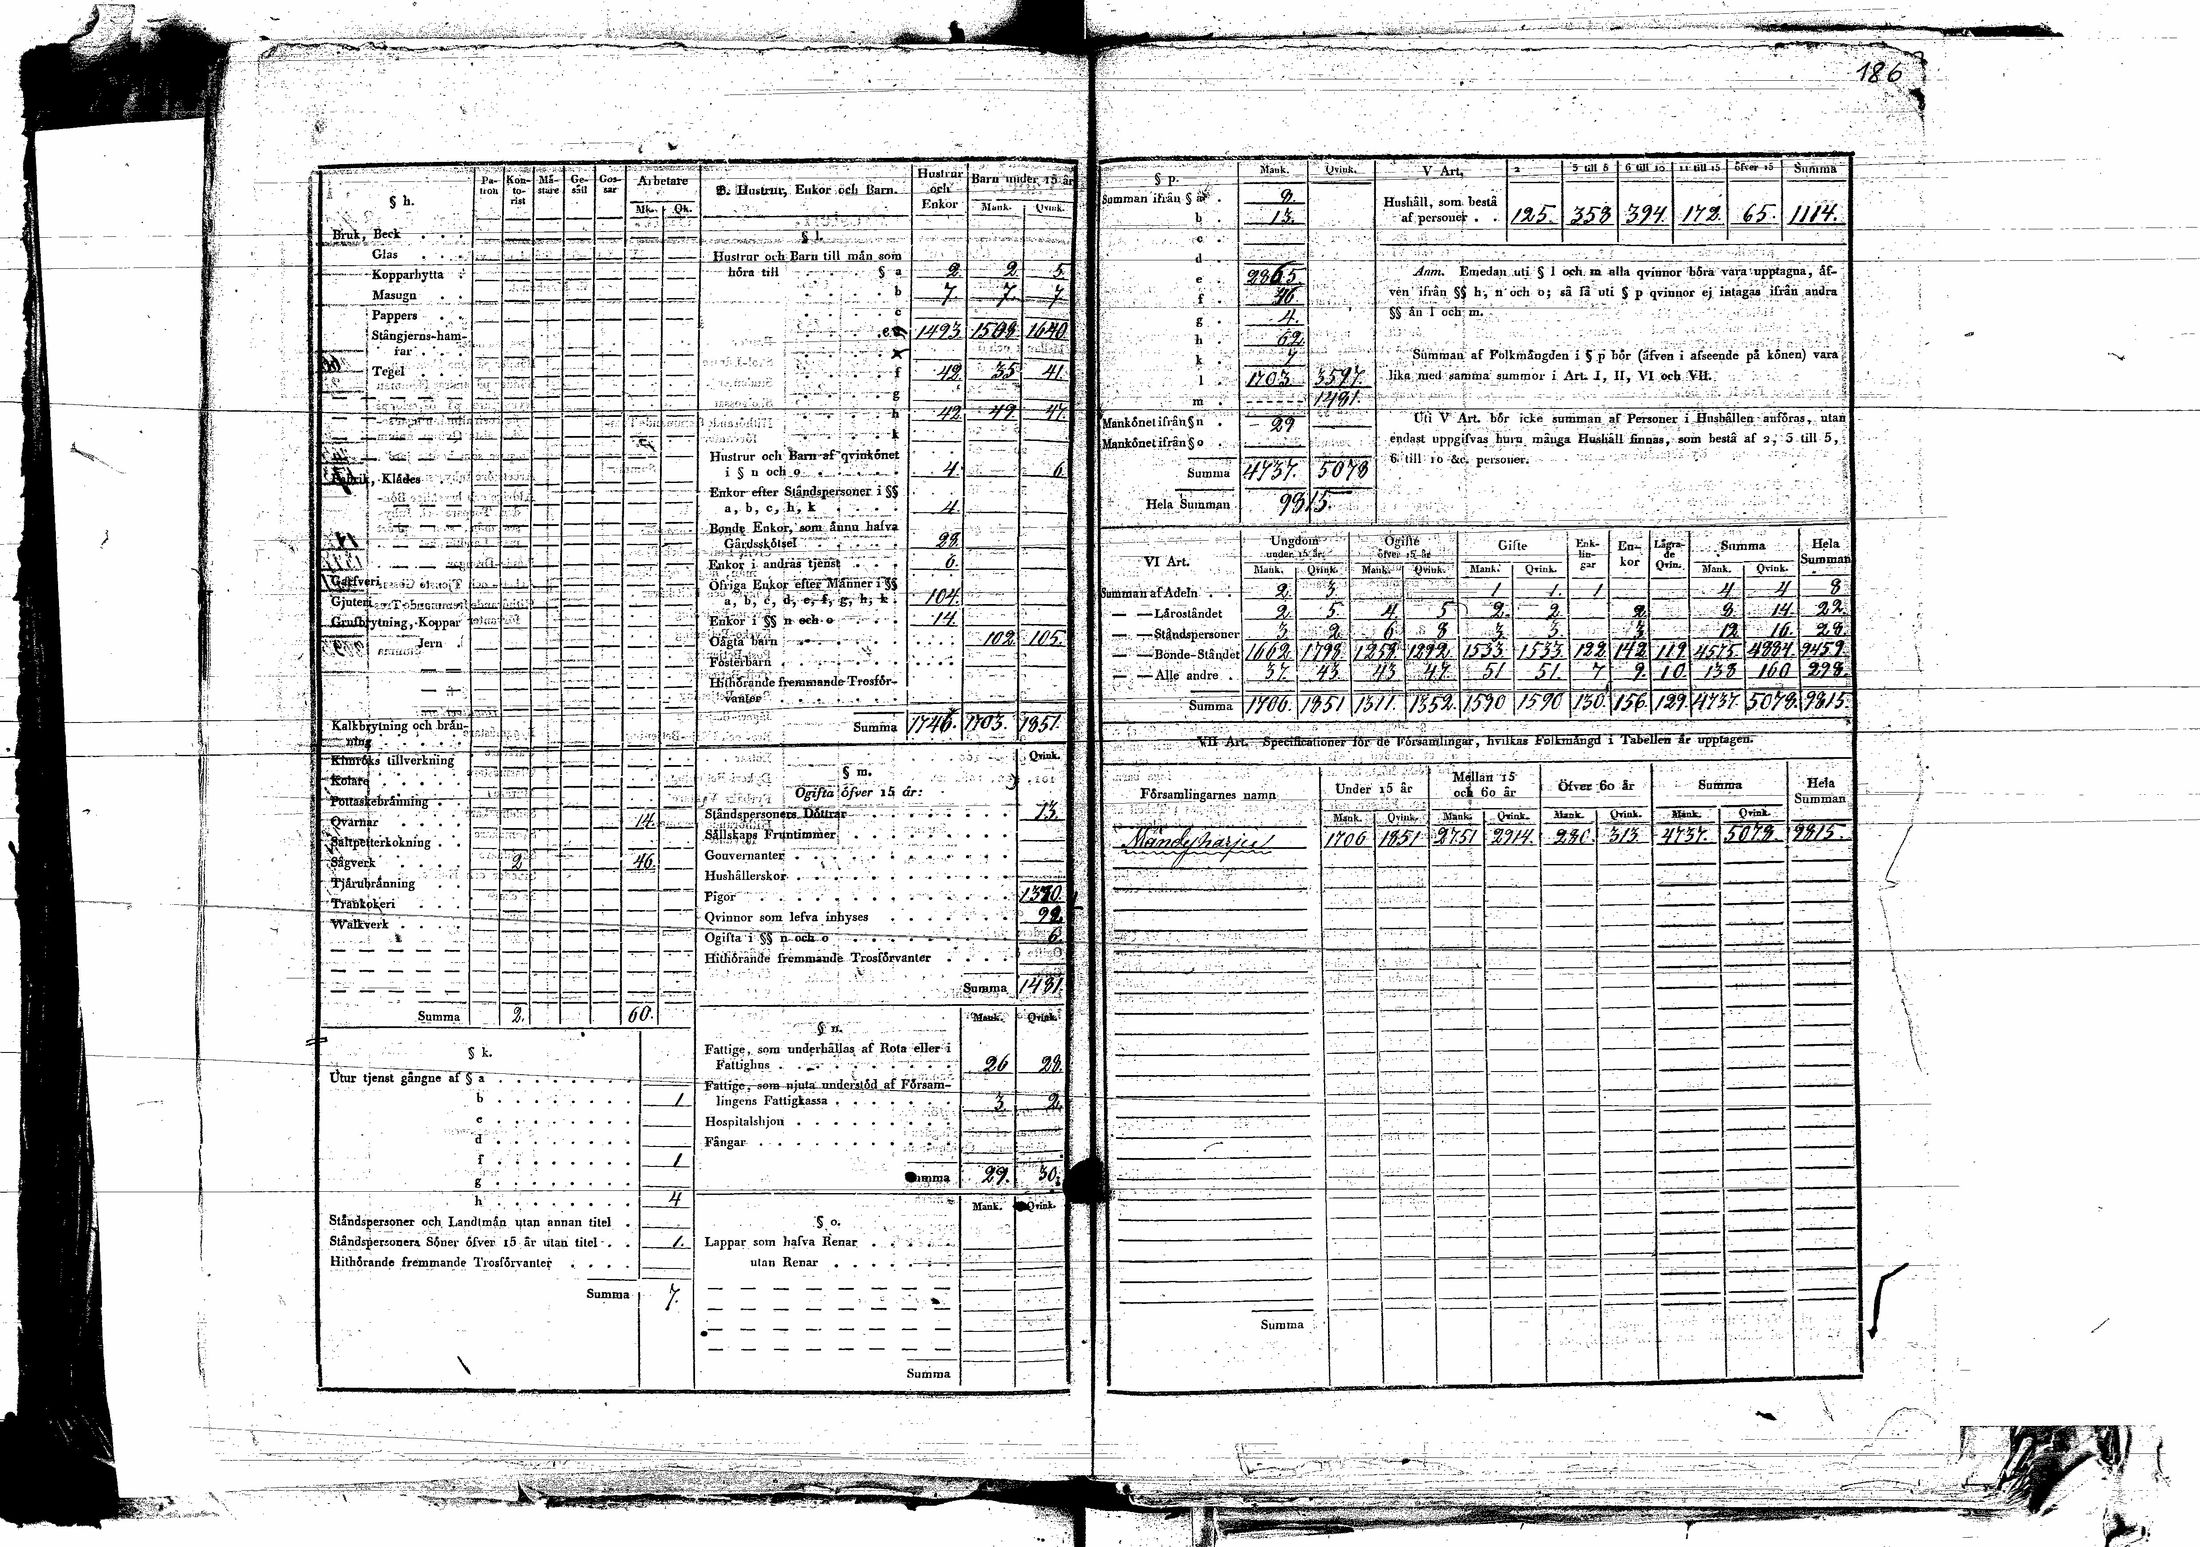 186
§ h. Pa-tron Kon-to-rist Mä-stare Ge-säll Gos-sar Arbetare
Mk. Qk.
Bruk, Beck . . .
Glas . . .
Kopparhytta .
Masugn . .
Pappers . .
Stångjerns-ham-
rar . . .
Tegel . . .
Fabrik, Klädes
Garfveri
Gjuteri
Grufbrytning, Koppar
Jern .
Kalkbrytning och brän-
ning . . . .
Kimröks tillverkning
Kolare
Pottaskebränning .
Qvarnar . . . 14.
Saltpetterkokning . .
Sågverk . . . 2 46.
Tjärubränning . .
Trankokeri . . .
Walkverk . . . .
Summa 2. 60.
§ k.
Utur tjenst gångne af § a . . . . . . .
b . . . . . . . 1
c . . . . . . .
d . . . . . . .
f . . . . . . . 1
g . . . . . . .
h . . . . . . . 4
Ståndspersoner och Landtmän utan annan titel .
Ståndspersoners Söner öfver 15 år utan titel . . 1.
Hithörande fremmande Trosförvanter . . . .
Summa 7.
B. Hustrur, Enkor och Barn. Hustrur och Enkor Barn under 15 år
Mank. Qvink.
§ l.
Hustrur och Barn till män som
höra till . . . . . § a 2. 2 5.
b 7. 7. 7
c
e 1493. 1508. 1640.
f 42. 35 41.
g
h 42. 49. 47.
k
Hustrur och Barn af qvinkönet
i § n och o . . . . . . 4. 6.
Enkor efter Ståndspersoner i §§
a, b, c, h, k . . . . 4
Bonde Enkor, som ännu hafva
Gårdsskötsel . . . . . 28.
Enkor i andras tjenst . . . . 6.
Öfriga Enkor efter Männer i §§
a, b, c, d, e, f, g, h, k . 104.
Enkor i §§ n och o . . . . 14.
Oägta barn . . . . . . . 102. 105.
Fosterbarn . . . . . . .
Hithörande fremmande Trosför-
vanter . . . . . . .
Summa 1746. 1703. 1851.
§ m. Qvink.
Ogifta öfver 15 år:
Ståndspersoners Döttrar . . . . . . . 13.
Sällskaps Fruntimmer . . . . . . .
Gouvernanter . . . . . . . .
Hushållerskor . . . . . . . .
Pigor . . . . . . . . 1370.
Qvinnor som lefva inhyses . . . . . . 92.
Ogifta i §§ n och o . . . . . . . 6.
Hithörande fremmande Trosförvanter . . . .
Summa 1481.
§ n. Mank. Qvink.
Fattige, som underhållas af Rota eller i
Fattighus . . . . . . . . 26 28.
Fattige, som njuta understöd af Försam-
lingens Fattigkassa . . . . . . 3. 2.
Hospitalshjon . . . . . . . .
Fångar . . . . . . . . .
Summa 29. 30.
§ o. Mank. Qvink.
Lappar som hafva Renar . . . . .
utan Renar . . . . . . .
Summa
§ p. Mank. Qvink.
Summan ifrån § a . 8.
b . 13.
c .
d .
e . 2865.
f . 46
g . 4.
h . 62.
k . 7
l . 1703. 3597.
m . 1481.
Mankönet ifrån § n . 29
Mankönet ifrån § o .
Summa 4737. 5078
Hela Summan 9815.
V Art. 2 3 till 5 6 till 10 11 till 15 öfver 15 Summa
Hushåll, som bestå
af personer . . 125. 358 394. 172. 65. 1114.
Anm. Emedan uti § l och m alla qvinnor böra vara upptagna, äf-
ven ifrån §§ h, n och o; så få uti § p qvinnor ej intagas ifrån andra
§§ än l och m.
Summan af Folkmängden i § p bör (äfven i afseende på könen) vara
lika med samma summor i Art. I, II, VI och VII.
Uti V Art. bör icke summan af Personer i Hushållen anföras, utan
endast uppgifvas huru många Hushåll finnas, som bestå af 2, 3 till 5,
6 till 10 &c. personer.
VI Art. Ungdom under 15 år. Ogifte öfver 15 år Gifte Enk-lin-gar En-kor Lägra-de Qvin. Summa Hela Summan
Mank. Qvink. Mank. Qvink. Mank. Qvink. Mank. Qvink.
Summan af Adeln . . 2. 3 1 1. 1 4 4 8
— — Läroståndet 2. 5. 4. 5 2. 2 2. 8 14. 22.
— — Ståndspersoner 3 2. 6 8 3 3 3. 12. 16. 28.
— — Bonde-Ståndet 1662. 1798. 1258. 1292. 1533. 1533. 122. 142. 119. 4575 4884. 9459.
— — Alle andre . 37. 43. 43 47. 51 51. 7 9. 10. 138 160 298.
Summa 1706. 1851 1311. 1352. 1590 1590 130. 156. 129. 4737. 5078. 9815.
VII Art. Specificationer för de Församlingar, hvilkas Folkmängd i Tabellen är upptagen.
Församlingarnes namn Under 15 år Mellan 15 och 60 år Öfver 60 år Summa Hela Summan
Mank. Qvink. Mank. Qvink. Mank. Qvink. Mank. Qvink.
Mändyharju 1706 1851 2751 2914. 280. 313. 4737. 5078. 9815.
Summa